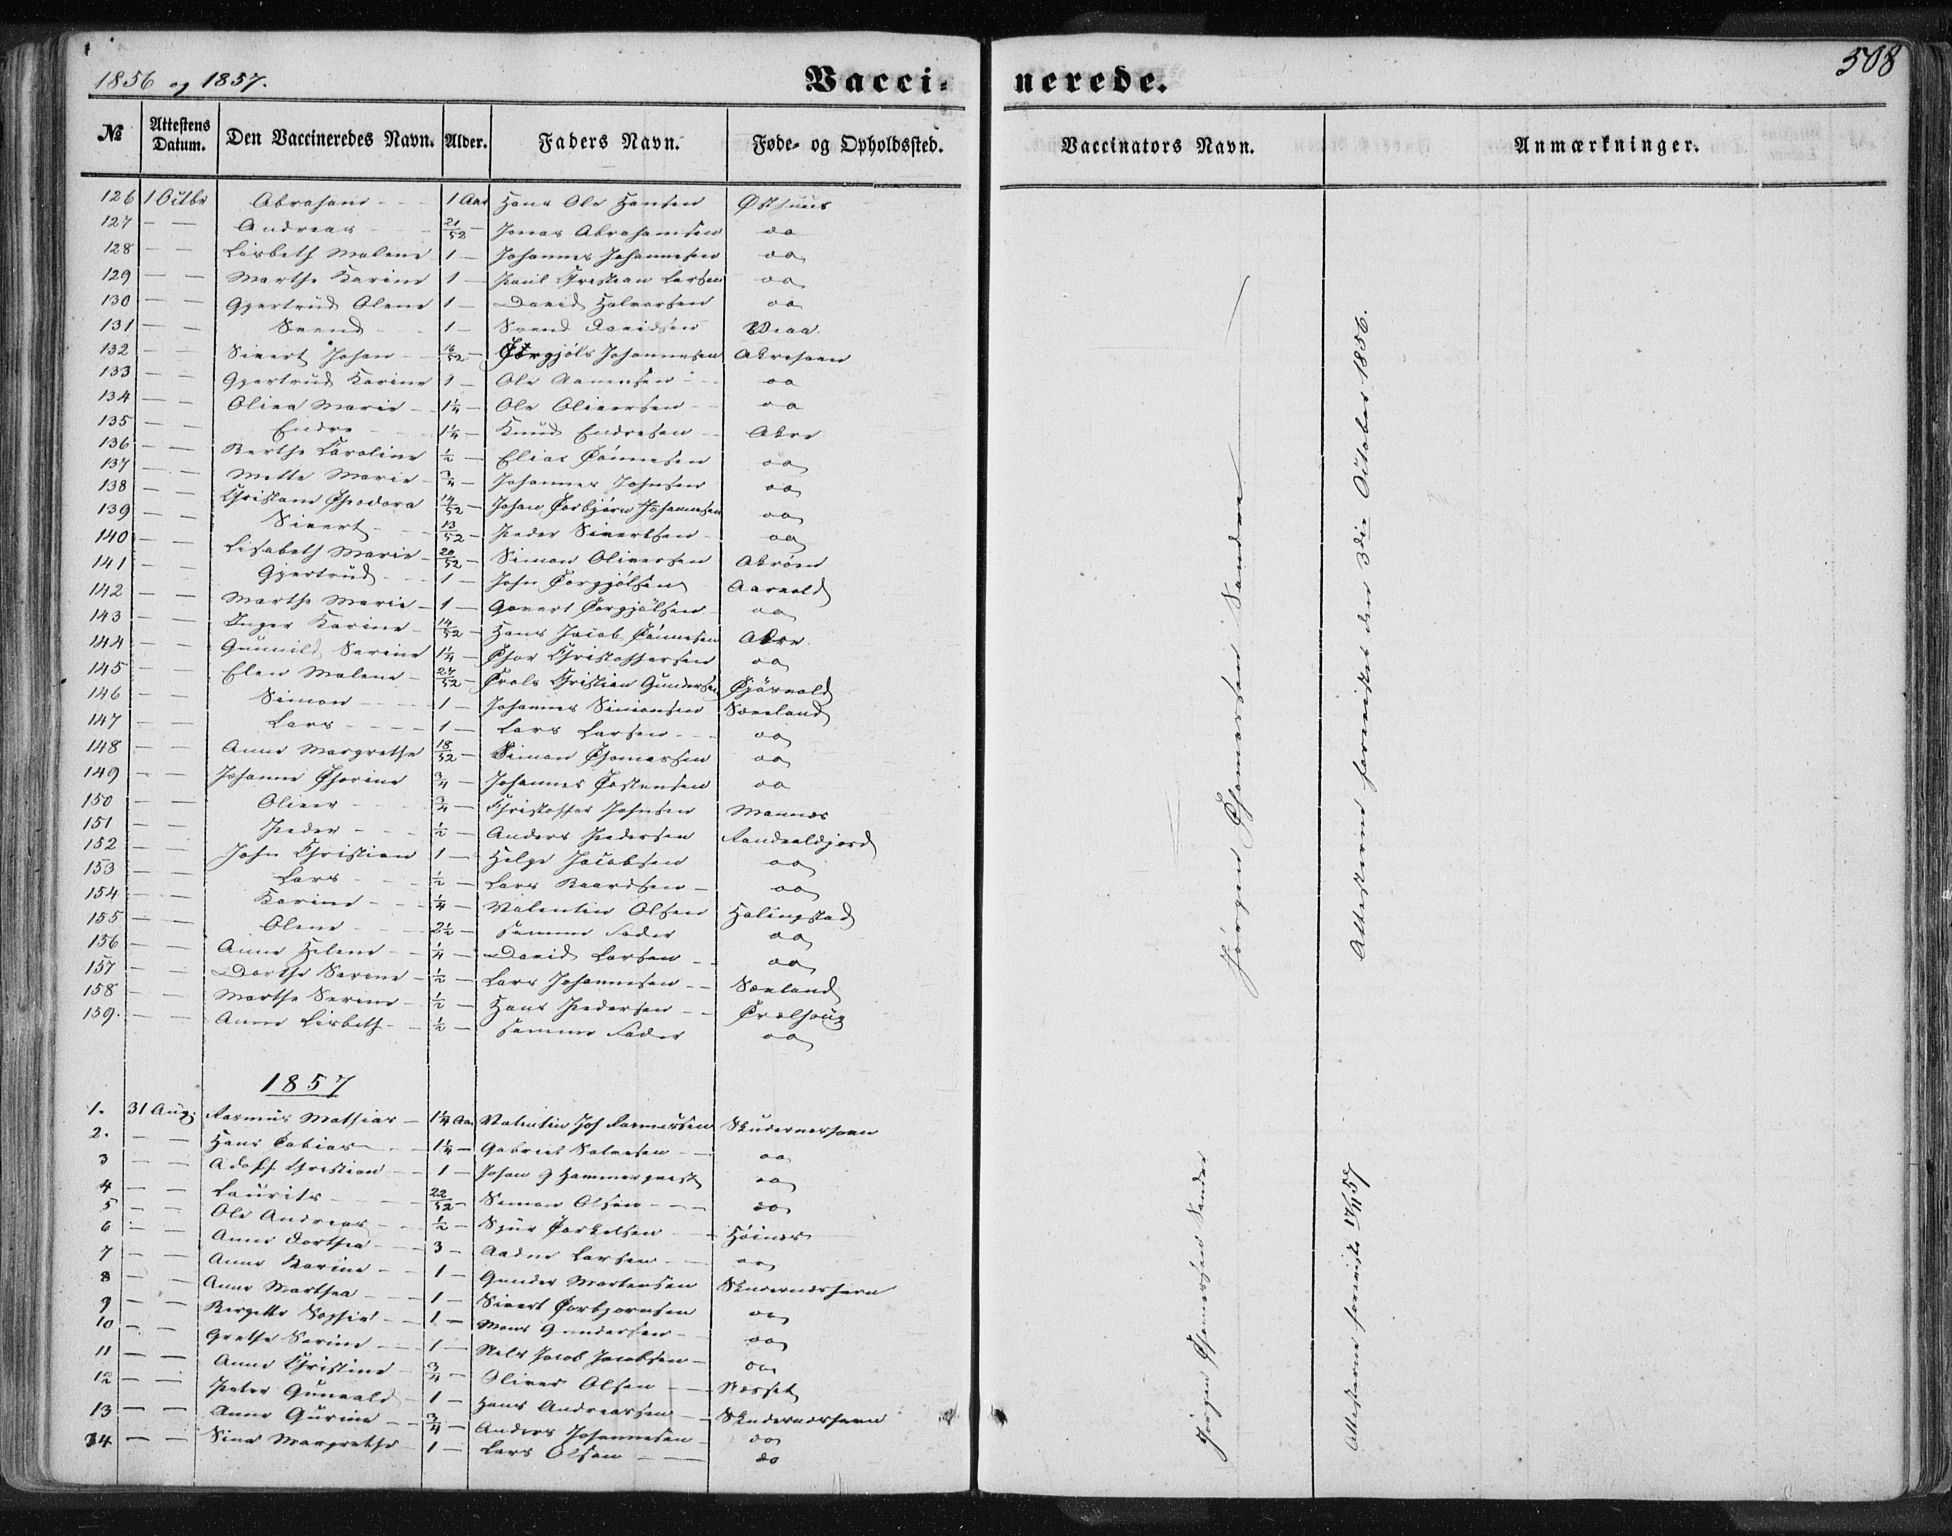 1856 og 1857.
Vacci- nerede.
508
№ Attestens Datum. Den Vaccineredes Navn. Alder. Faders Navn. Føde- og Opholdssted. Vaccinators Navn. Anmærkninger.
126 1 Octbr Abraham - - 1 Aar Hans Ole Hansen Østhuus
127 — — Andreas - - 21/52 — Jonas Abrahamsen do
128 — — Lisbeth Malene 1 — Johannes Johannesen do
129 — — Marthe Karine 1 — Paul Christian Larsen do
130 — — Gjertrud Olene 1 — David Halvorsen do
131 — — Svend - - 1 — Svend Davidsen Veaa
132 — — Sivert Johan - 16/52 — Torgjøls Johannesen Akrehavn
133 — — Gjertrud Karine 1 — Ole Aanensen - - do
134 — — Oliva Marie - 1¼ — Ole Oliversen - do
135 — — Endre - - 1¼ — Knud Endresen - Akre
136 — — Berthe Caroline ½ — Elias Tønnesen do
137 — — Mette Marie - ¾ — Johannes Johnsen do
138 — — Christiane Theodora 14/52 — Johan Torbjørn Johannesen do
139 — — Sivert - - 13/52 — Peder Sivertsen - do
140 — — Lisabeth Marie - 20/52 — Simon Oliversen Akrøen
141 — — Gjertrud - - 1 — John Torgjølsen Aarvold
142 — — Marthe Marie - 1 — Govert Torgjølsen - do
143 — — Inger Karine - 14/52 — Hans Jacob Tønnesen Akre
144 — — Gunnild Serine 1¼ — Thor Christoffersen do
145 — — Elen Malene - 24/52 — Trols Christian Gundersen Tjøsvold
146 — — Simon - - 1 — Johannes Simonsen Sæveland
147 — — Lars - - - 1 — Lars Larsen - - do
148 — — Anne Margrethe 18/52 — Simon Thomassen do
149 — — Johanne Thorine ¾ — Johannes Tostensen do
150 — — Oliver - - ¾ — Christoffer Johnsen Mannes
151 — — Peder - - - ½ — Anders Pedersen Sandvaldjord
152 — — John Christian 1 — Helge Jacobsen do
153 — — Lars - - ½ — Lars Baardsen - do
154 — — Karine - - ¼ — Valentin Olsen Helingstad
155 — — Olene - - 2½ — samme Fader do
156 — — Anne Helene - - ¼ — David Larsen - - do
157 — — Dorthe Serine - ½ — Lars Johannesen - - Sæland
158 — — Marthe Serine - ½ — Hans Pedersen - - Trælhoug
159. — — Anne Lisbeth - - ½ — samme Fader do
1857
1. 31 Aug: Rasmus Mathias - 1¼ Aar Valentin Joh Rasmussen Skudeneshavn
2. — — Hans Tobias - 1¼ — Gabriel Salvesen - - do
3 — — Adolf Christian - - 1 — Johan G Hammerqvist do
4 — — Laurits - - 22/52 — Simon Olsen - - - do
5 — — Ole Andreas - - ½ — Sjur Torkelsen - - Høines
6 — — Anne Dorthea - - 3 — Aadne Larsen - - do
7 — — Anne Karine - - 1 — Gunder Mortensen Skudeneshavn
8 — — Anne Marthea - - 1 — Sivert Torbjørnsen do
9 — — Bergitte Sophie - - 1 — Mons Gundersen - do
10 — — Grethe Serine - - 1 — Niels Jacob Jacobsen - do
11 — — Anne Christine - ¾ — Oliver Olsen - - Næsset
12 — — Peter Gunvald - 1 — Hans Andreassen - - Skudeneshavn
13 — — Anne Gurine - - ¾ — Anders Johannesen - do
14 — — Sina Margrethe - 1 — Lars Olsen - - do
Jørgen Thomassen Sandve
Attesterne foreviste den 3die October 1856.
Jørgen Thomassen Sandve
Attesterne foreviste 17/11 57